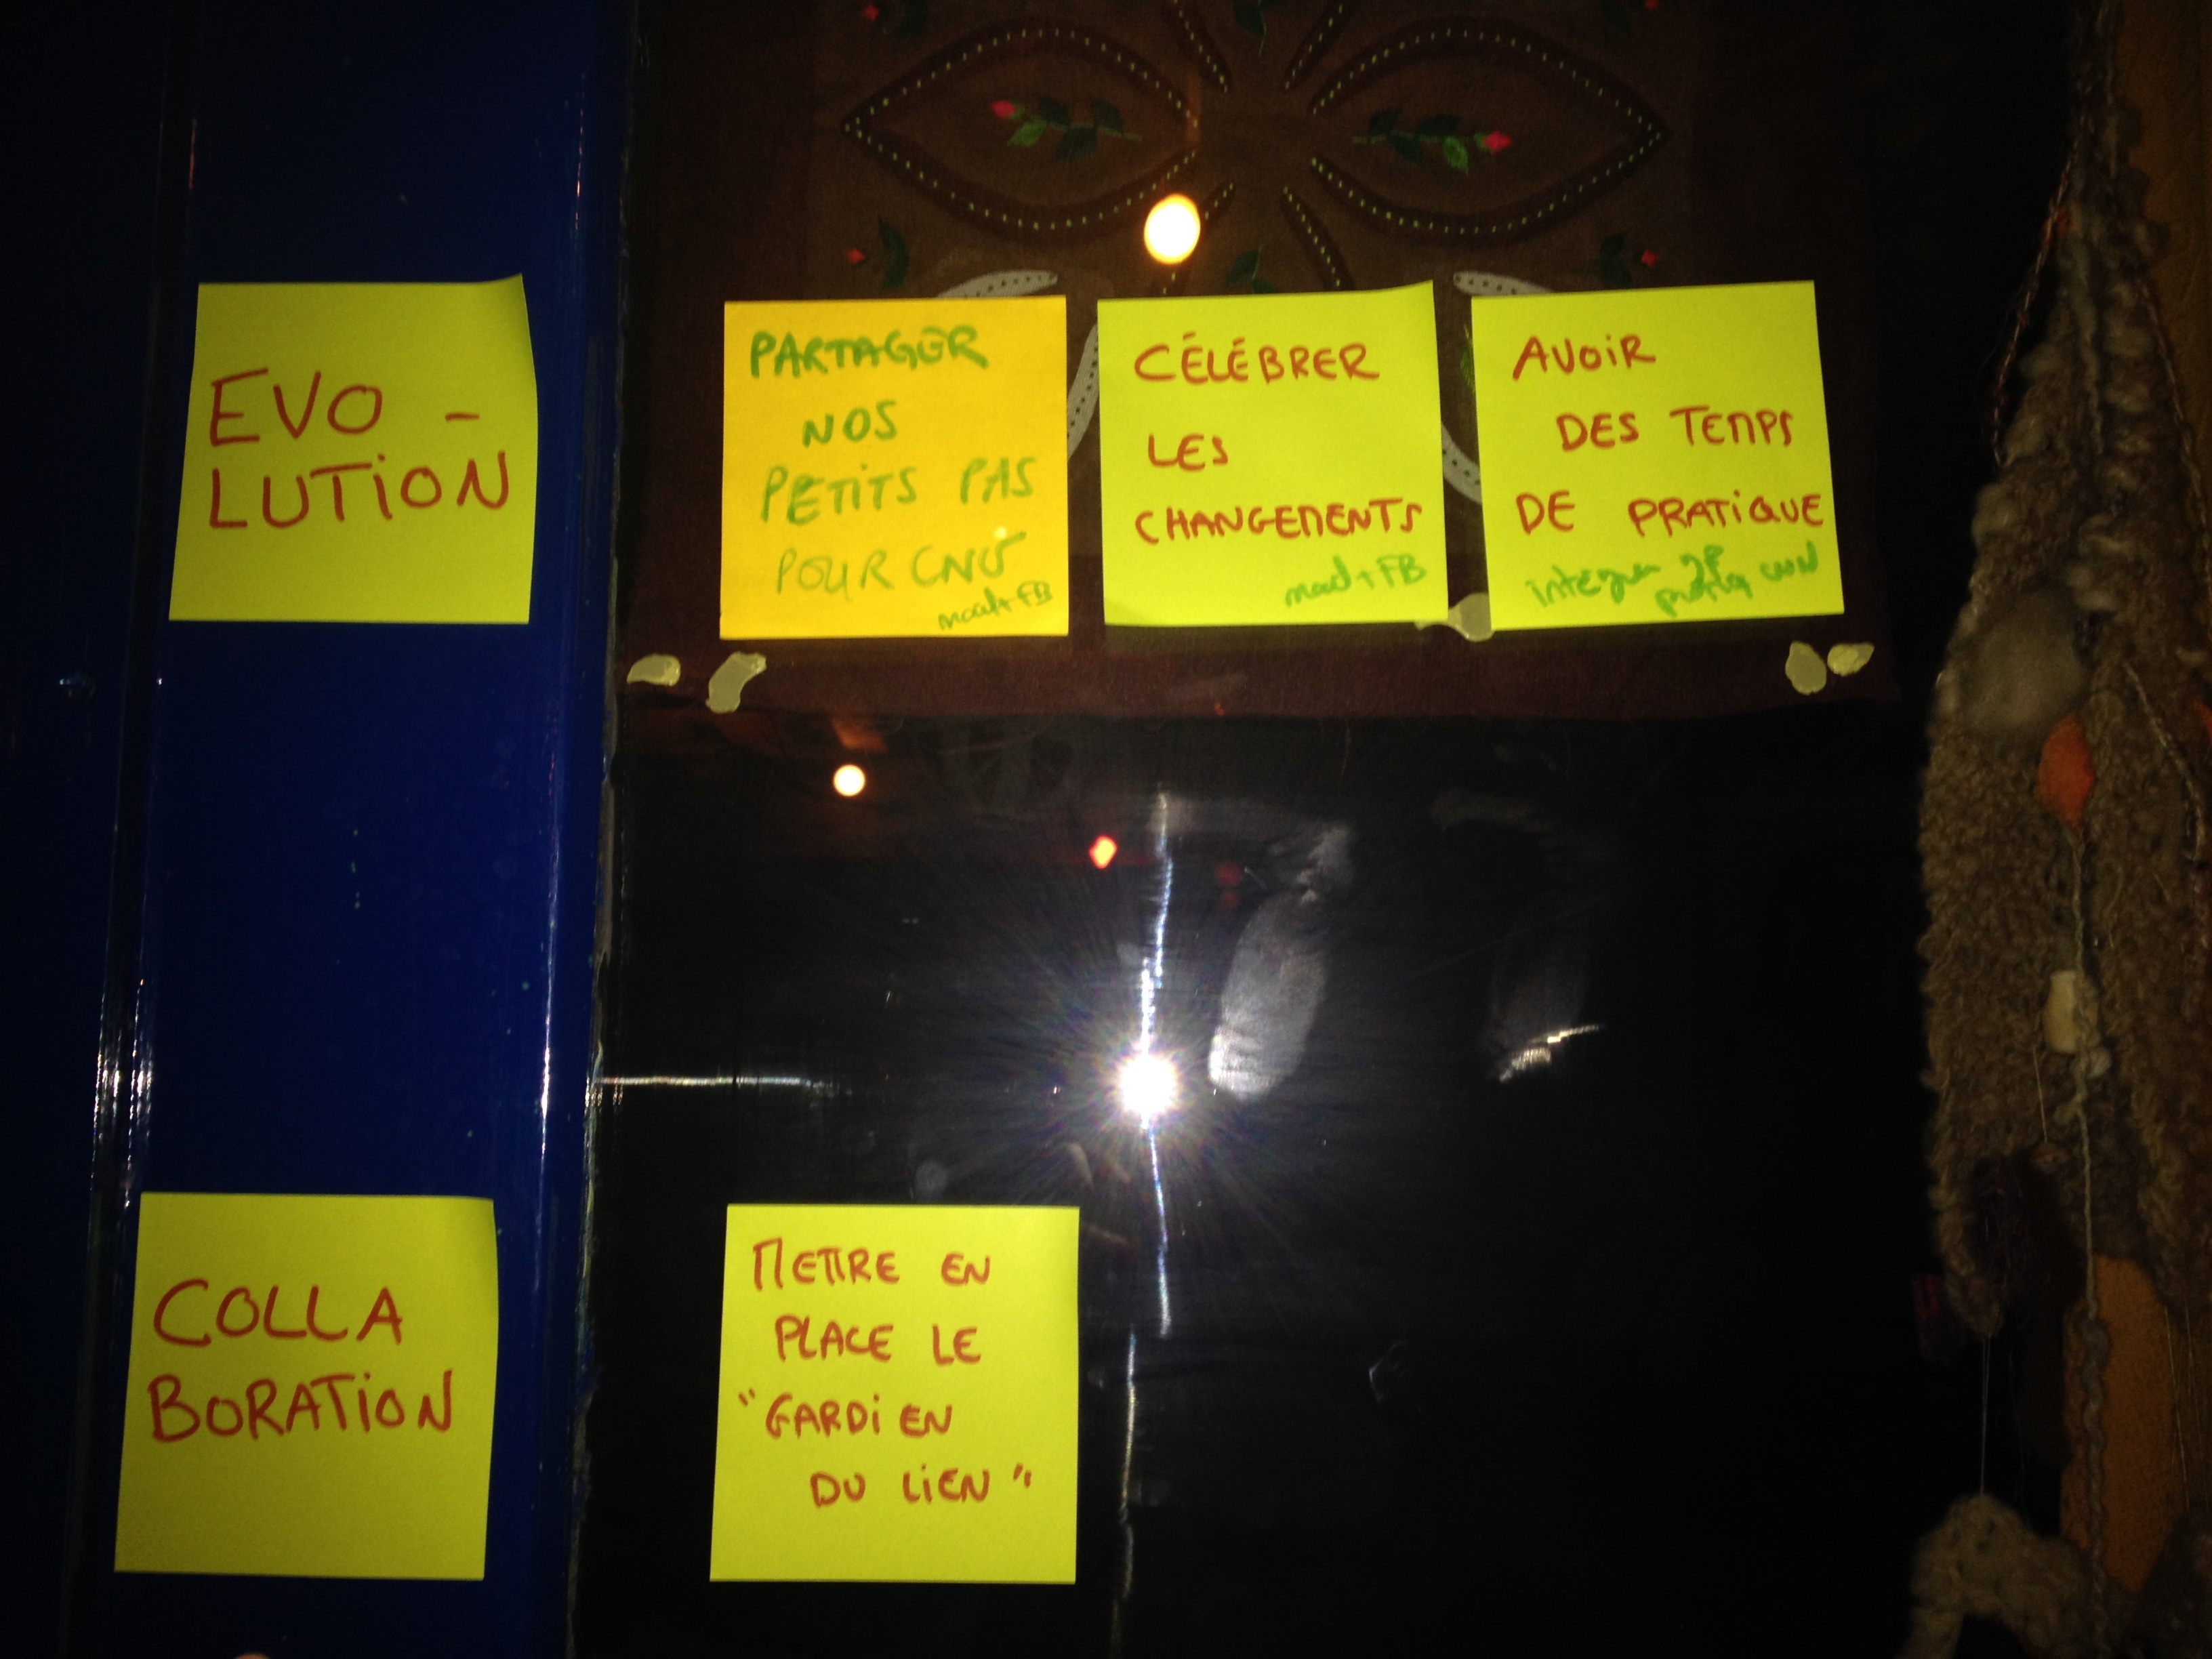 EVO -
LUTiON
PARTAGER
NOS
PETiTS PAS
POUR CNV
mail + FB
CÉLÉBRER
LES
CHANGEMENTS
mail + FB
AVOiR
DES TEMPS
DE PRATiQUE
COLLA
BORATiON
METTRE EN
PLACE LE
"GARDiEN
DU LiEN"